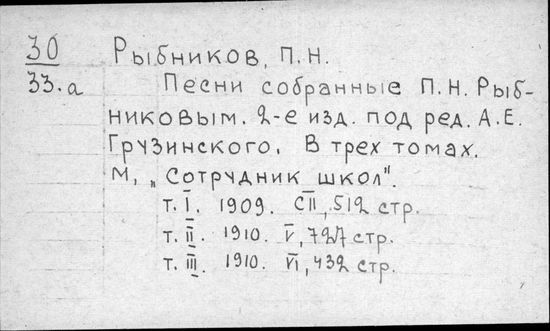 30 Рыбников, П.Н.
33.а Песни собранные П.Н. Рыб-
никовым. 2-е изд. под ред. А.Е.
Грузинского. В трех томах.
М., „Сотрудник школ".
т. I. 1909. CII, 512 стр.
т. II. 1910. V, 727 стр.
т. III. 1910. VI, 432 стр.